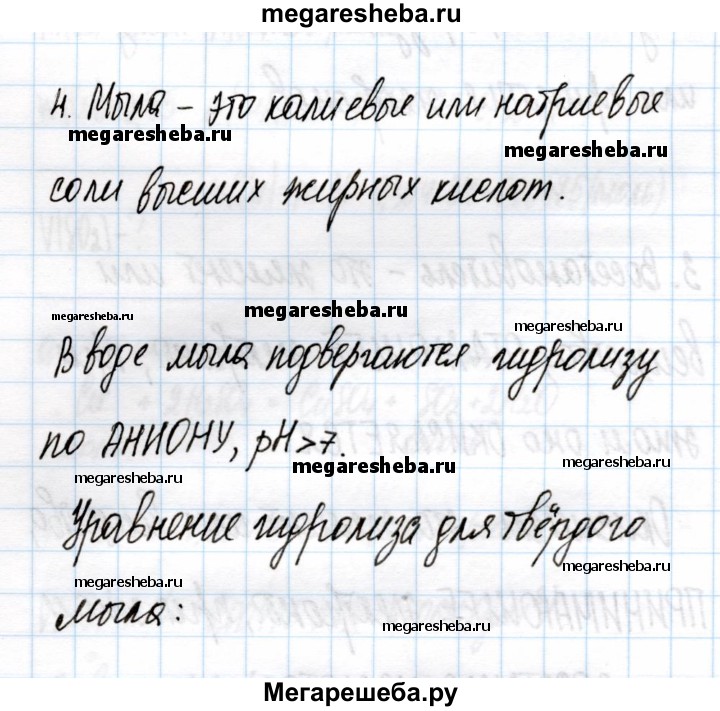 megaresheba.ru
4. Мыла – это калиевые или натриевые
megaresheba.ru
megaresheba.ru
соли высших жирных кислот.
megaresheba.ru
megaresheba.ru
megaresheba.ru
В воде мыла подвергаются гидролизу
по АНИОНУ, pH>7.
megaresheba.ru
megaresheba.ru
Уравнение гидролиза для твёрдого
megaresheba.ru
megaresheba.ru
мыла:
megaresheba.ru
Мегарешеба.ру